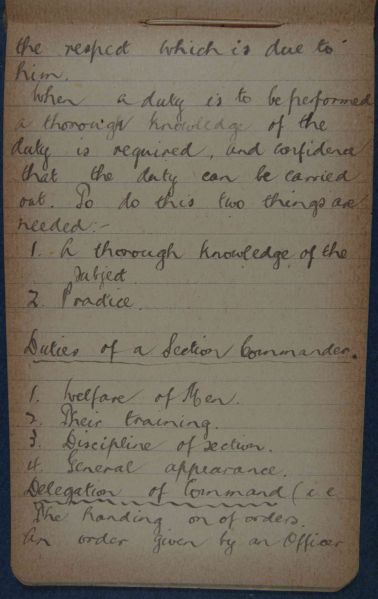 the respect which is due to
him.
When a duty is to be performed
a thorough knowledge of the
duty is required, and confidence
that the duty can be carried
out. To do this two things are
needed:-
1. A thorough knowledge of the
subject.
2. Practice.
Duties of a Section Commander.
1. Welfare of Men.
2. Their training.
3. Discipline of section.
4. General appearance.
Delegation of Command (i.e.
The handing on of orders.
An order given by an Officer